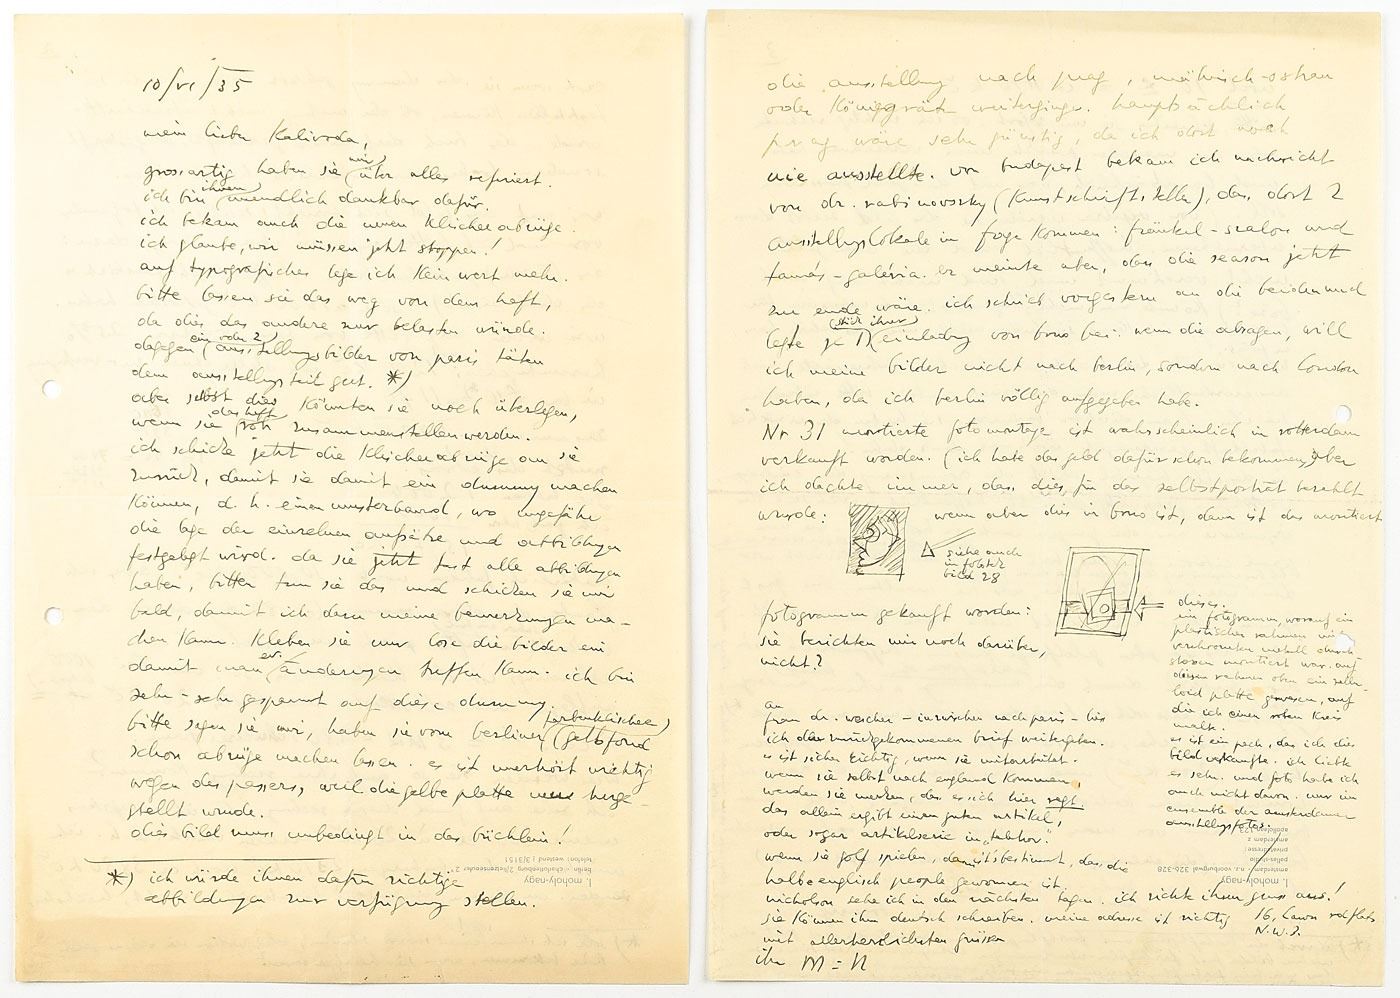 10/VI/35
mein lieber Kalivoda,
grossartig haben sie mir über alles referiert.
ich bin ihnen unendlich dankbar dafür.
ich bekam auch die neuen Klischeeabzüge.
ich glaube, wir müssen jetzt stoppen!
auf typografisches lege ich kein wert mehr.
bitte lassen sie das weg von dem heft,
da dies das andere nur belasten würde.
dagegen ein oder 2 ausstellungsbilder von paris täten
dem ausstellungsteil gut. *)
aber selbst dies könnten sie noch überlegen,
wenn sie das heft roh zusammenstellen werden.
ich schicke jetzt die Klischeeabzüge an sie
zurück, damit sie damit ein dummy machen
können, d. h. einen musterband, wo ungefähr
die lage der einzelnen aufsätze und abbildungen
festgelegt wird. da sie jetzt fast alle abbildungen
haben, bitte tun sie das und schicken sie mir
bald, damit ich dazu meine bemerkungen ma-
chen kann. Kleben sie nur lose die bilder ein
damit man ev. änderungen treffen kann. ich bin
sehr-sehr gespannt auf diese dummy
bitte sagen sie mir, haben sie vom berliner farbenklischee (gelbfond
schon abzüge machen lassen. es ist unerhört wichtig
wegen des passers, weil die gelbe platte neu herge-
stellt wurde.
dies bild muss unbedingt in das büchlein!
*) ich würde ihnen dafür richtige
abbildungen zur verfügung stellen.
l. moholy-nagy
die ausstellung nach prag, mährisch-ostrau
oder Königgrätz weiterginge. hauptsächlich
prag wäre sehr günstig, da ich dort noch
nie ausstellte. von budapest bekam ich nachricht
von dr. rabinovszky (Kunstschriftsteller), das dort 2
ausstellungslokale in frage kommen: fränkel-szalon und
tamás-galéria. er meinte aber, dass die season jetzt
zu ende wäre. ich schrieb vorgestern an die beiden und
legte je 1 einladung von brno bei. wenn die absagen, will
ich meine bilder nicht nach berlin, sondern nach london
haben, da ich berlin völlig aufgegeben habe.
Nr 31 montierte fotomontage ist wahrscheinlich in rotterdam
verkauft worden. (ich habe das geld dafür schon bekommen) aber
ich dachte immer, das dies für das selbstporträt bezahlt
wurde: wenn aber dies in brno ist, dann ist das montierte
siehe auch
in foto
bild 28
fotogramm gekauft worden:
sie berichten mir noch darüber,
nicht?
dieses:
ein fotogramm, worauf ein
plastischer rahmen mit
verchromten metall
montiert war. auf
diesen rahmen oben ein zellu-
loid platte gewesen, auf
die ich einen roten kreis
malte.
es ist ein pech, das ich dies
bild verkaufte. ich liebte
es sehr. und foto habe ich
auch nicht davon. nur im
ensemble der amsterdamer
ausstellungsfotos.
an
frau dr. - inzwischen nach paris -
ich den zurückgekommenen brief weitergeben.
es ist sicher richtig, wenn sie mitarbeitet.
wenn sie selbst nach england kommen,
werden sie merken, das es sich hier regt.
das allein ergibt einen guten artikel,
oder sogar artikelserie in "telehor".
wenn sie golf spielen, damit ist bestimmt, das die
halbe englisch people gewonnen ist.
nicholson sehe ich in den nächsten tagen. ich richte ihm gruss aus!
sie können ihm deutsch schreiben. meine adresse ist richtig 16, Lawn rd flats
N.W.3.
mit allerherzlichsten grüssen
ihr M=N
l. moholy-nagy